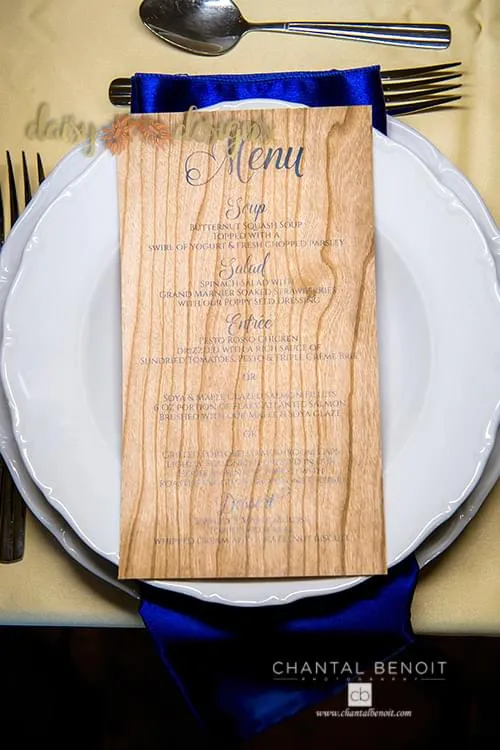 daisy designs
Menu
Soup
BUTTERNUT SQUASH SOUP
TOPPED WITH A
SWIRL OF YOGURT & FRESH CHOPPED PARSLEY
Salad
SPINACH SALAD WITH
GRAND MARNIER SOAKED STRAWBERRIES
WITH OUR POPPY SEED DRESSING
Entrée
PESTO ROSSO CHICKEN
DRIZZLED WITH A RICH SAUCE OF
SUNDRIED TOMATOES, PESTO & TRIPLE CRÈME BRIE
OR
SOYA & MAPLE GLAZED SALMON FILLETS
6 OZ PORTION OF FLAKY ATLANTIC SALMON
BRUSHED WITH OUR MAPLE & SOYA GLAZE
OR
GRILLED PORTOBELLO MUSHROOM CAPS
Dessert
WHIPPED CREAM AND HAZELNUT BISCUIT
CHANTAL BENOIT
PHOTOGRAPHY
cb
www.chantalbenoit.com